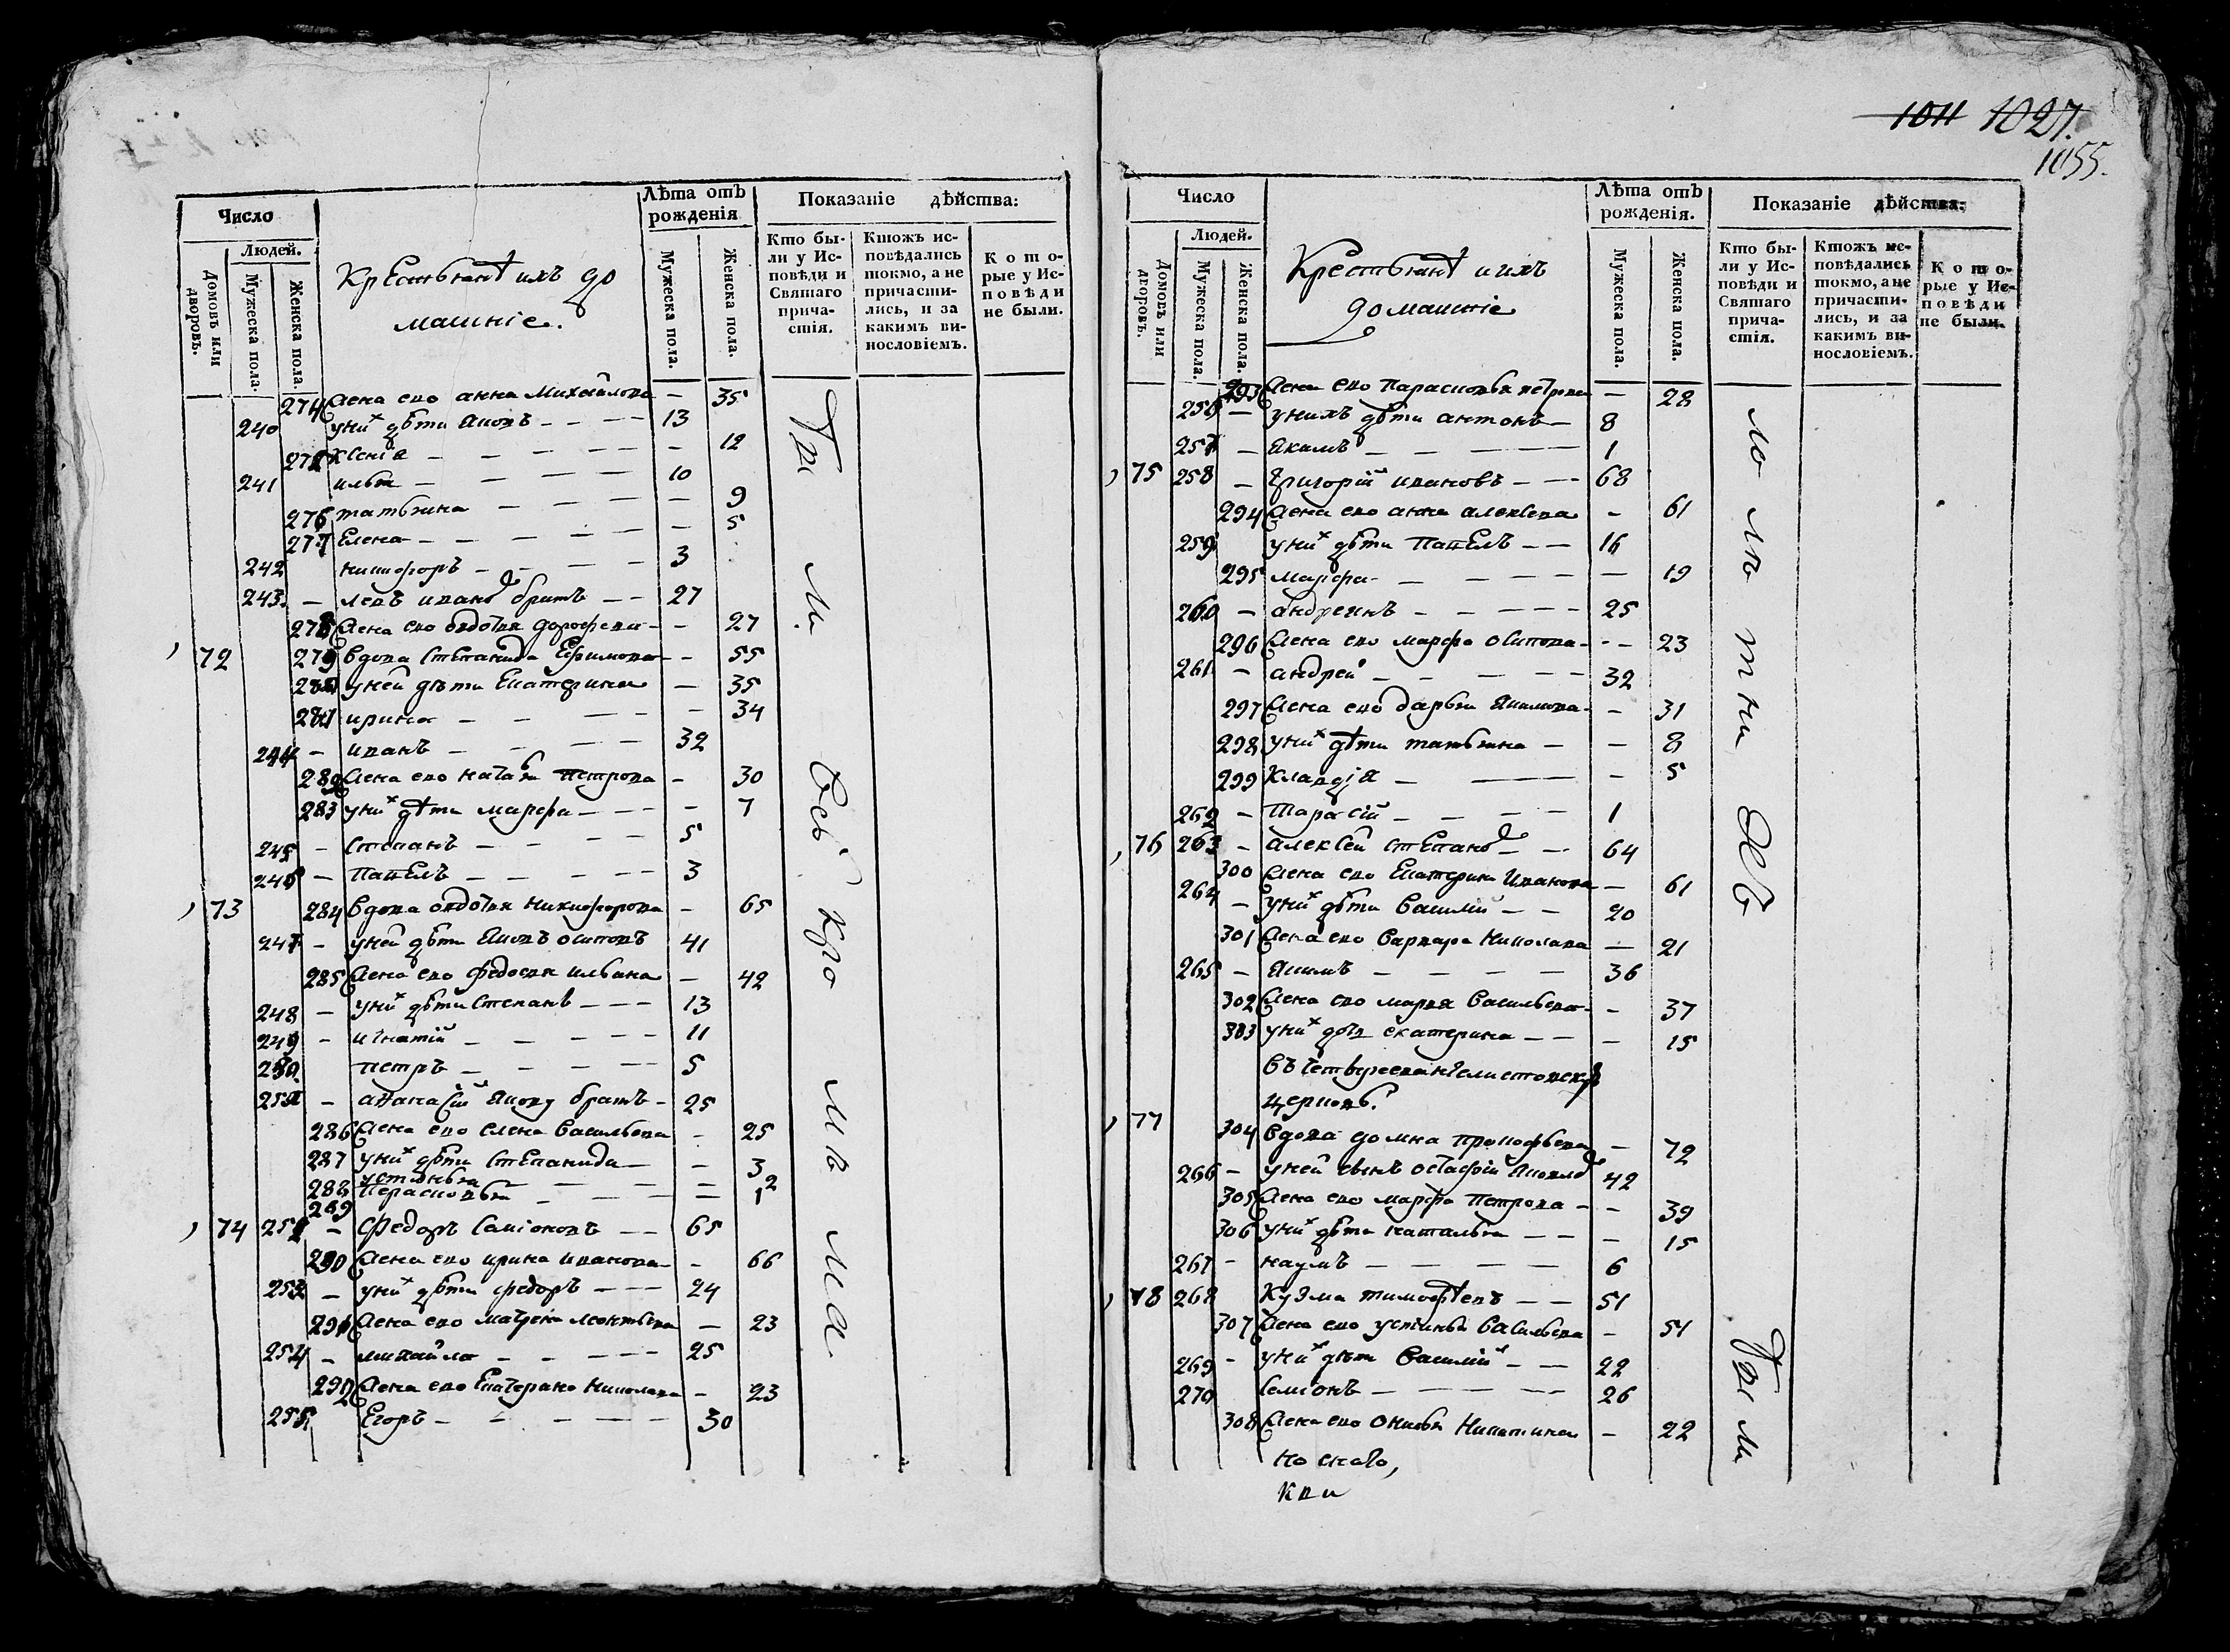 1011 1027.
1055.
Число
Людей.
Домовъ или дворовъ.
Мужеска пола.
Женска пола.
Крестьянѣ ихъ до
машніе.
Лѣта отъ рожденія
Мужеска пола.
Женска пола.
Показаніе дѣйства:
Кто бы-
ли у Ис-
повѣди и
Святаго
прича-
стія.
Ктожъ ис-
повѣдались
токмо, а не
причасти-
лись, и за
какимъ ви-
нословіемъ.
Кото-
рые у Ис-
повѣди
не были.
274 Жена ево анна Михайлова - 35
240 у них дѣти Яковъ - - - - 13
275 Ксенія - - - - - 12
241 илья - - - - 10
276 татьяна - - - - 9
277 Елена - - - - - 5
242 никифоръ - - - - 3
243. - левъ ивано братъ - - 27
278 Жена ево овдотья дорофеева - - 27
72 279 вдова Степанида Ефимова - 55
280 у ней дѣти Екатерина - 35
281 ирина - - - - - 34
244 - иванъ - - - - 32
282 Жена ево наталья Петрова - 30
283 у них дѣти марфа - - - - 7
245 - Степанъ - - - - 5
246 - Павелъ - - - - - 3
73 284 вдова овдотья Никифорова - 65
247 - у ней дѣти Яковъ осиповъ 41
285 Жена ево федосья ильина - 42
248 - у них дѣти Степанъ - - - 13
249 - игнатій - - - - - 11
250 петръ - - - - - 5
251 - аѳанасій Якову братъ - 25
286 Жена ево елена васильева - 25
287 у них дѣти Степанида - - 3
288 устинья - - - 2
289 Парасковья - - - 1
74 252 - Федоръ Семіоновъ - - 65
290 Жена ево ирина иванова - - 66
253 - у них дѣти федоръ - - - 24
291 Жена ево матрена леонтьева - 23
254 - михайло - - - - - 25
292 Жена ево Екатерина Николаева - 23
255 Егоръ - - - - - 30
Число
Людей.
Домовъ или дворовъ.
Мужеска пола.
Женска пола.
Крестьянѣ и ихъ
домашніе
Лѣта отъ рожденія.
Мужеска пола.
Женска пола.
Показаніе дѣйства:
Кто бы-
ли у Ис-
повѣди и
Святаго
прича-
стія.
Ктожъ ис-
повѣдались
токмо, а не
причасти-
лись, и за
какимъ ви-
нословіемъ.
Кото-
рые у Ис-
повѣди
не были.
293 Жена ево Парасковья петрова - 28
256 - у нихъ дѣти антонъ - 8
257 - Якимъ - - - - - 1
75 258 - Григорій ивановъ - - - 68
294 Жена ево анна алексеева - 61
259 у них дѣти Павелъ - - 16
295 марфа - - - - - - 19
260 - андреянъ - - - - - 25
296 Жена ево марфа осипова - - - 23
261 - андрей - - - - - 32
297 Жена ево дарья Якимова - - 31
298 у них дѣти татьяна - - 8
299 Клавдія - - - - 5
262 - Тарасій - - - - 1
76 263 - алексѣй степано - - 64
300 Жена ево Екатерина Иванова - 61
264 - у них дѣти василій - - 20
301 Жена ево варвара Николаева - 21
265 - Якимъ - - - - 36
302 Жена ево марья васильева - - 37
303 у них дочь екатерина - - - 15
въ четвероевангелистовской
церковь.
77 304 вдова домна прокофьева - 72
266 - у ней сынъ остафій Яковле 42
305 Жена ево марфа Петрова - - 39
306 у них дѣти наталья - - - 15
267 - наумъ - - - - 6
78 268 Кузма тимофѣевъ - - 51
307 Жена ево устинья васильева - 51
269 - у них дѣти василій - - 22
270 Семіонъ - - - - - 26
308 Жена ево Никитина - 22